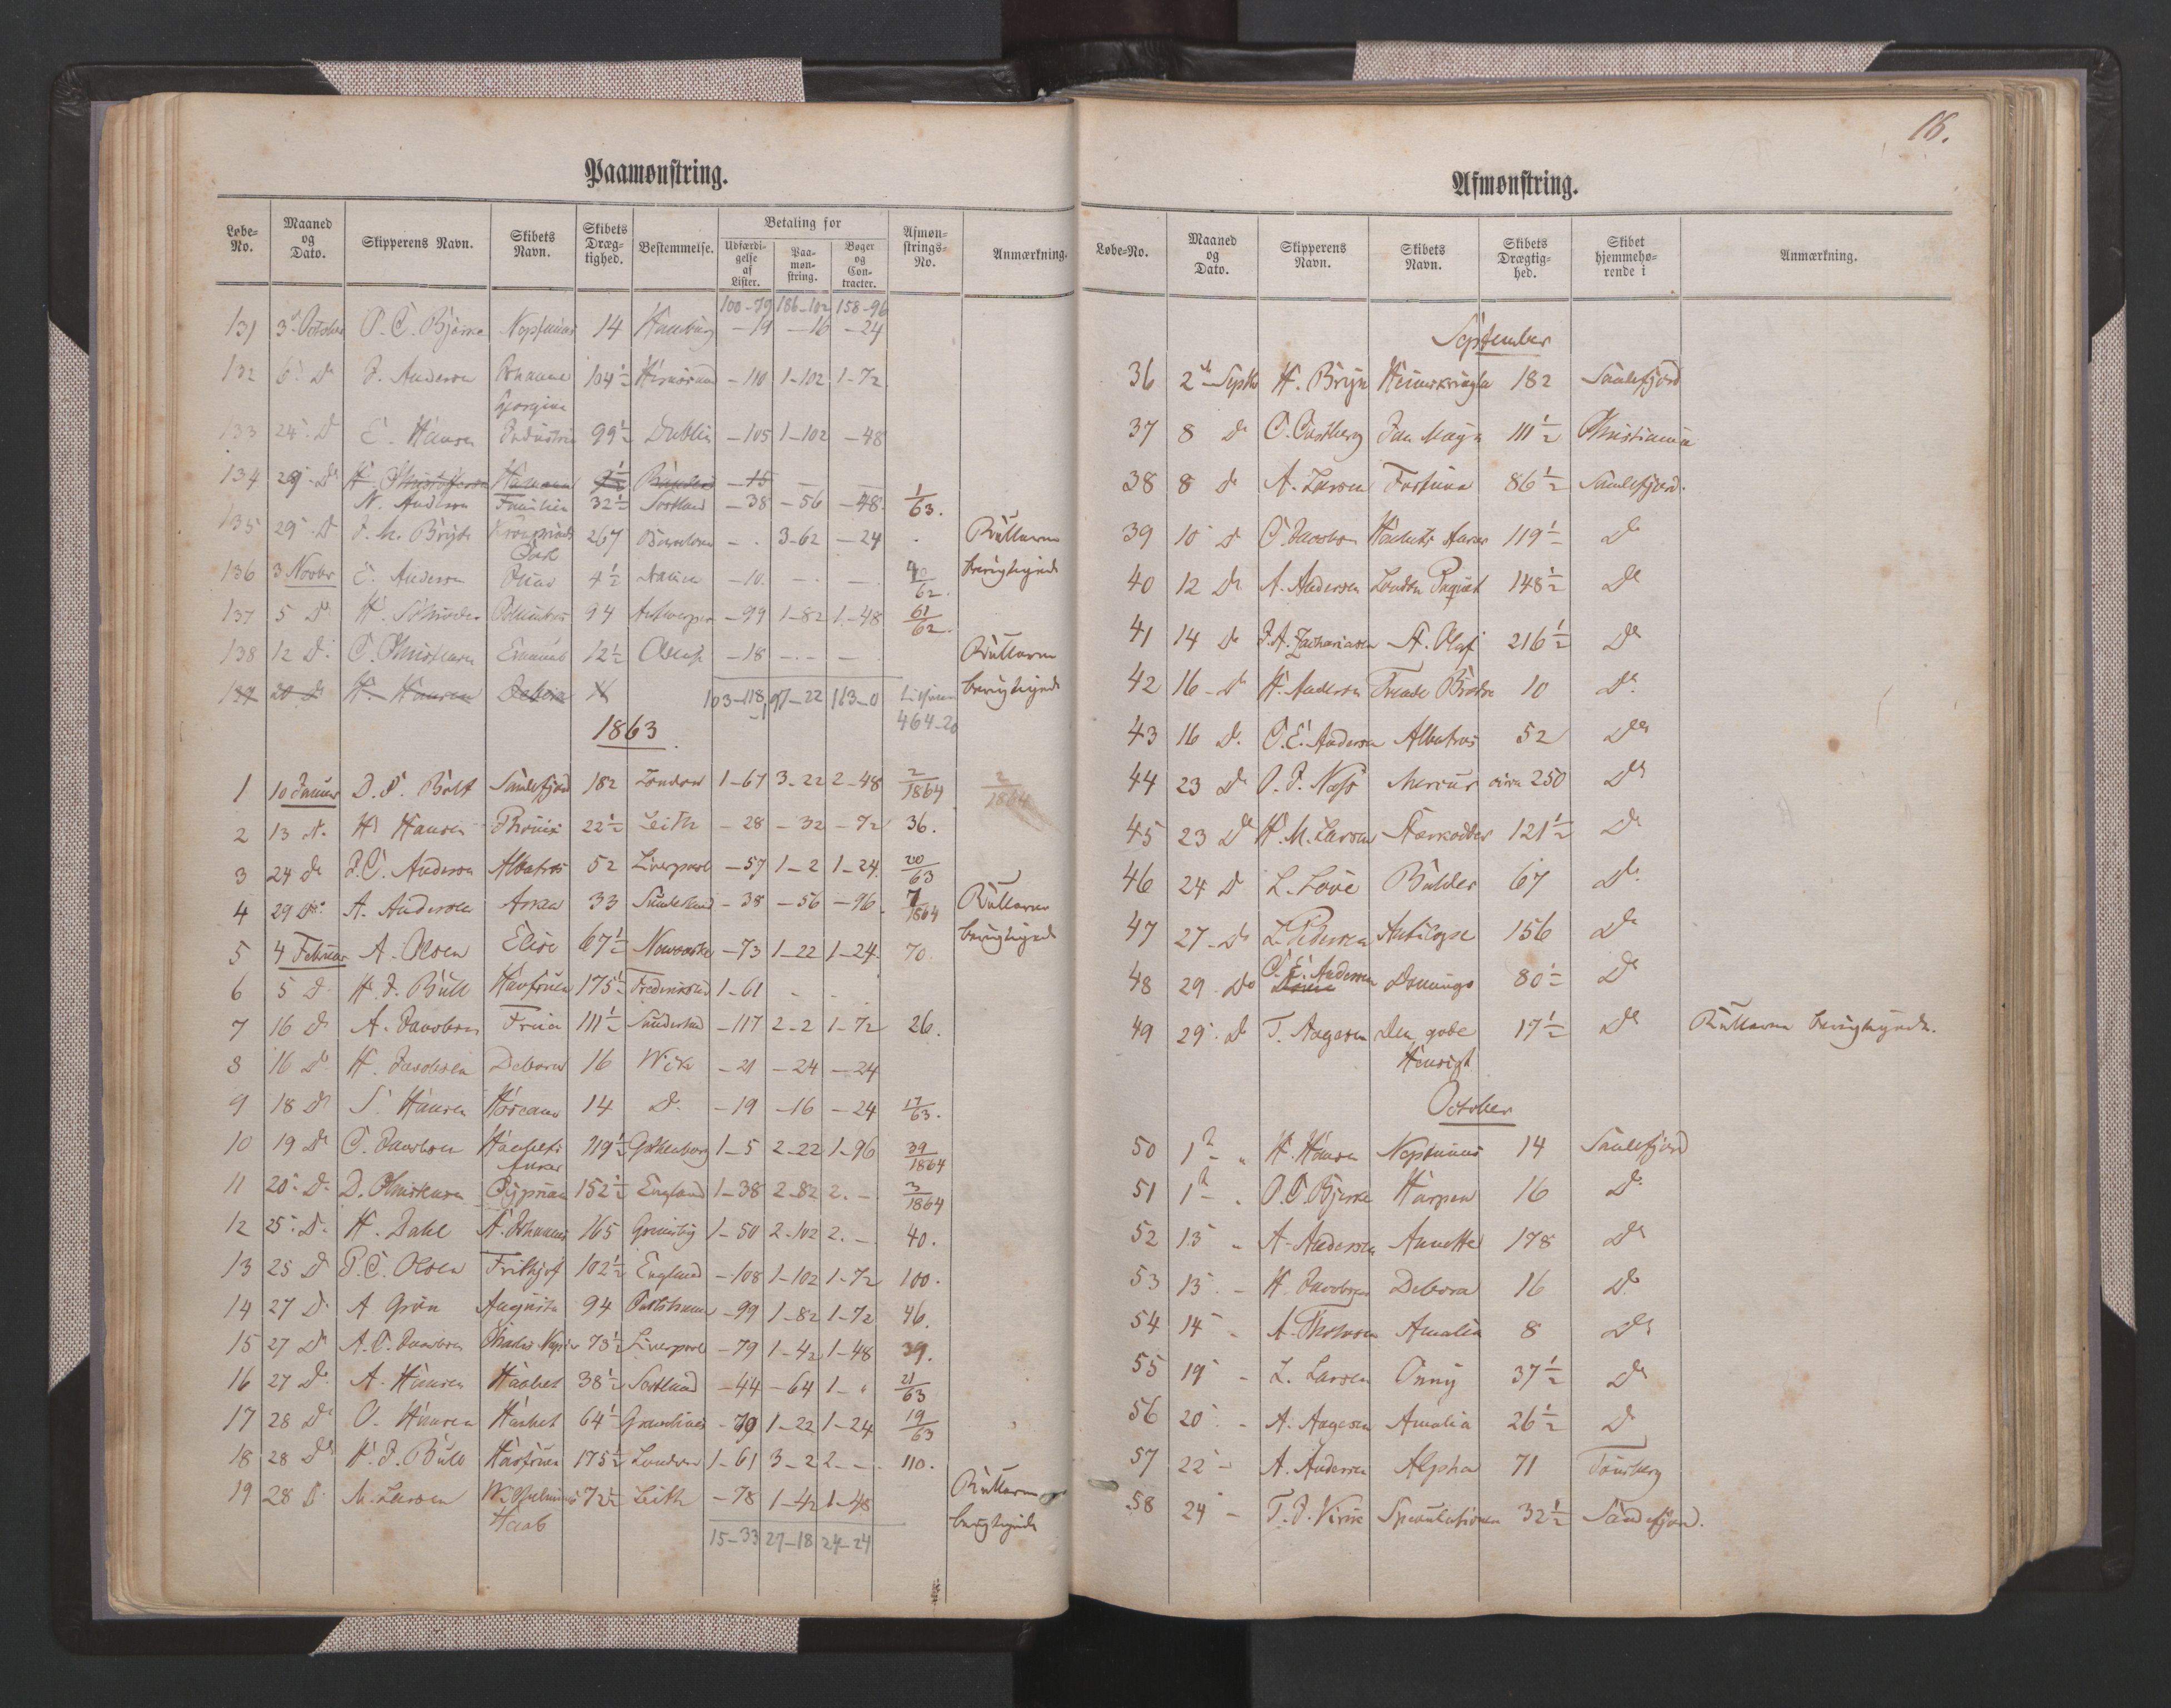 Paamønstring.
Løbe-No. Maaned og Dato. Skipperens Navn. Skibets Navn. Skibets Dræg-tighed. Bestemmelse. Betaling for Udfærdi-gelse af Lister. Paa-møn-string. Bøger og Con-tracter. Afmøn-strings-No. Anmærkning.
100-79 186-102 158-96
131 3d October P. C. Bjerke Neptunus 14 Hamburg -19 -16 -24
132 6 Do J. Anderson Johanne Georgine 104½ -110 1-102 1-72
133 24 Do E. Hansen Industrie 99½ Dublin -105 1-102 -48
134 29 Do H. Christoffersen -15
N. Anderson Familien 32½ Skotland -38 -56 -48 1/63.
135 29 Do J. M. Bryde 267 - 3-62 -24 Rullerne
136 3 Novbr E. Anderson 4½ -10 - - 40/62. berigtigede
137 5 Do H. 94 Antwerpen -99 1-82 1-48 61/62.
138 12 Do C. Christensen 12½ -18 - - Rullerne
139 20 Do H. Hansen Debora 103-118 197-22 163-0 berigtigede
464-20
1863.
1 10 Januar 182 London 1-67 3-22 2-48 2/1864 2/1864
2 13 Do Hs Hansen 22½ Leith -28 -32 -72 36.
3 24 do J. C. Anderson Albatros 52 Liverpool -57 1-2 1-24 20/63
4 29 Do A. Andersen 33 Sunderland -38 -56 -96 7/1864 Rullerne
5 4 Februar A. Olsen Elise 67½ Newcastle -73 1-22 1-24 70. berigtigede
6 5 Do H. J. Bull Havfruen 175½ Fredrikstad 1-61 - -
7 16 Do A. Jacobsen Freia 111½ Sunderland -117 2-2 1-72 26.
8 16 Do H. Jacobsen Debora 16 Wick -21 -24 -24
9 18 Do S. Hansen 14 Do -19 -16 -24 17/63.
10 19 Do C. Jacobsen Haabets Anker 119½ Gothenborg 1-5 2-22 1-96 39/1864
11 20 Do D. Christensen Cyprian 152½ England 1-38 2-82 2.- 3/1864
12 25 Do H. Dahl St. Johannes 165 Grimsby 1-50 2-102 2.- 40.
13 25 Do P. C. Olsen Frithjof 102½ England -108 1-102 1-72 100.
14 27 Do A. Grøn Augusta 94 -99 1-82 1-72 46.
15 27 Do A. C. Jacobsen Charles Napier 73½ Liverpool -79 1-42 1-48 39.
16 27 Do A. Hansen Haabet 38½ Skotland -44 -64 1-" 21/63
17 28 Do O. Hansen Haabet 64½ -70 1-22 1-24 19/63
18 28 Do H. J. Bull Havfruen 175½ London 1-61 3-2 2.- 110.
19 28 Do M. Larsen Wilhelmines Haab 72½ Leith -78 1-42 1-48 Rullerne berigtigede
15-33 27-18 24-24
16.
Afmønstring.
Løbe-No. Maaned og Dato. Skipperens Navn. Skibets Navn. Skibets Drægtig-hed. Skibet hjemmehø-rende i Anmærkning.
September
36 2d Septbr H. Bryn Heimskringla 182 Sandefjord
37 8 Do C. Castberg Jan Mayn 111½ Christiania
38 8 do A. Larsen Fortuna 86½ Sandefjord.
39 10 Do C. Jacobsen Haabets Anker 119½ Do
40 12 Do A. Andersen London Paquet 148½ Do
41 14 Do J. A. Zachariasen St. Olaf 216½ Do
42 16 - Do H. Anderson Trende Brødre 10 Do
43 16 Do O. E. Anderson Albatros 52 Do
44 23 Do O. J. Næss Mercur circa 250 Do
45 23 Do H. M. Larsen Stærkodder 121½ Do
46 24 Do L. Love Balder 67 Do
47 27 - Do L. Pedersen Antilope 156 Do
48 29 Do C. E. Andersen Dronningo 80½ Do
49 29 Do T. Aagesen Den gode Hensigt 17½ Do Rullerne berigtigede.
October
50 1 " H. Hansen Neptunus 14 Sandefjord
51 1 " O. C. Bjerke Harpen 16 Do
52 13 " A. Andersen Annette 178 Do
53 13 - H. Jacobsen Debora 16 Do
54 14 - A. Thorsen Amalia 8 Do
55 19 - L. Larsen Onny 37½ Do
56 20 - A. Aagesen Amalia 26½ Do
57 22 - A. Andersen Alpha 71 Tønsberg
58 24 - T. J. Virik Speculationen 32½ Sandefjord.